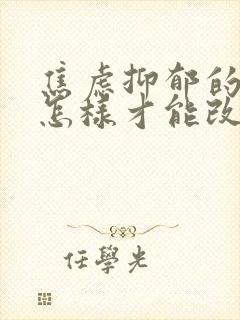 焦虑抑郁的
怎樣才能改
任學光